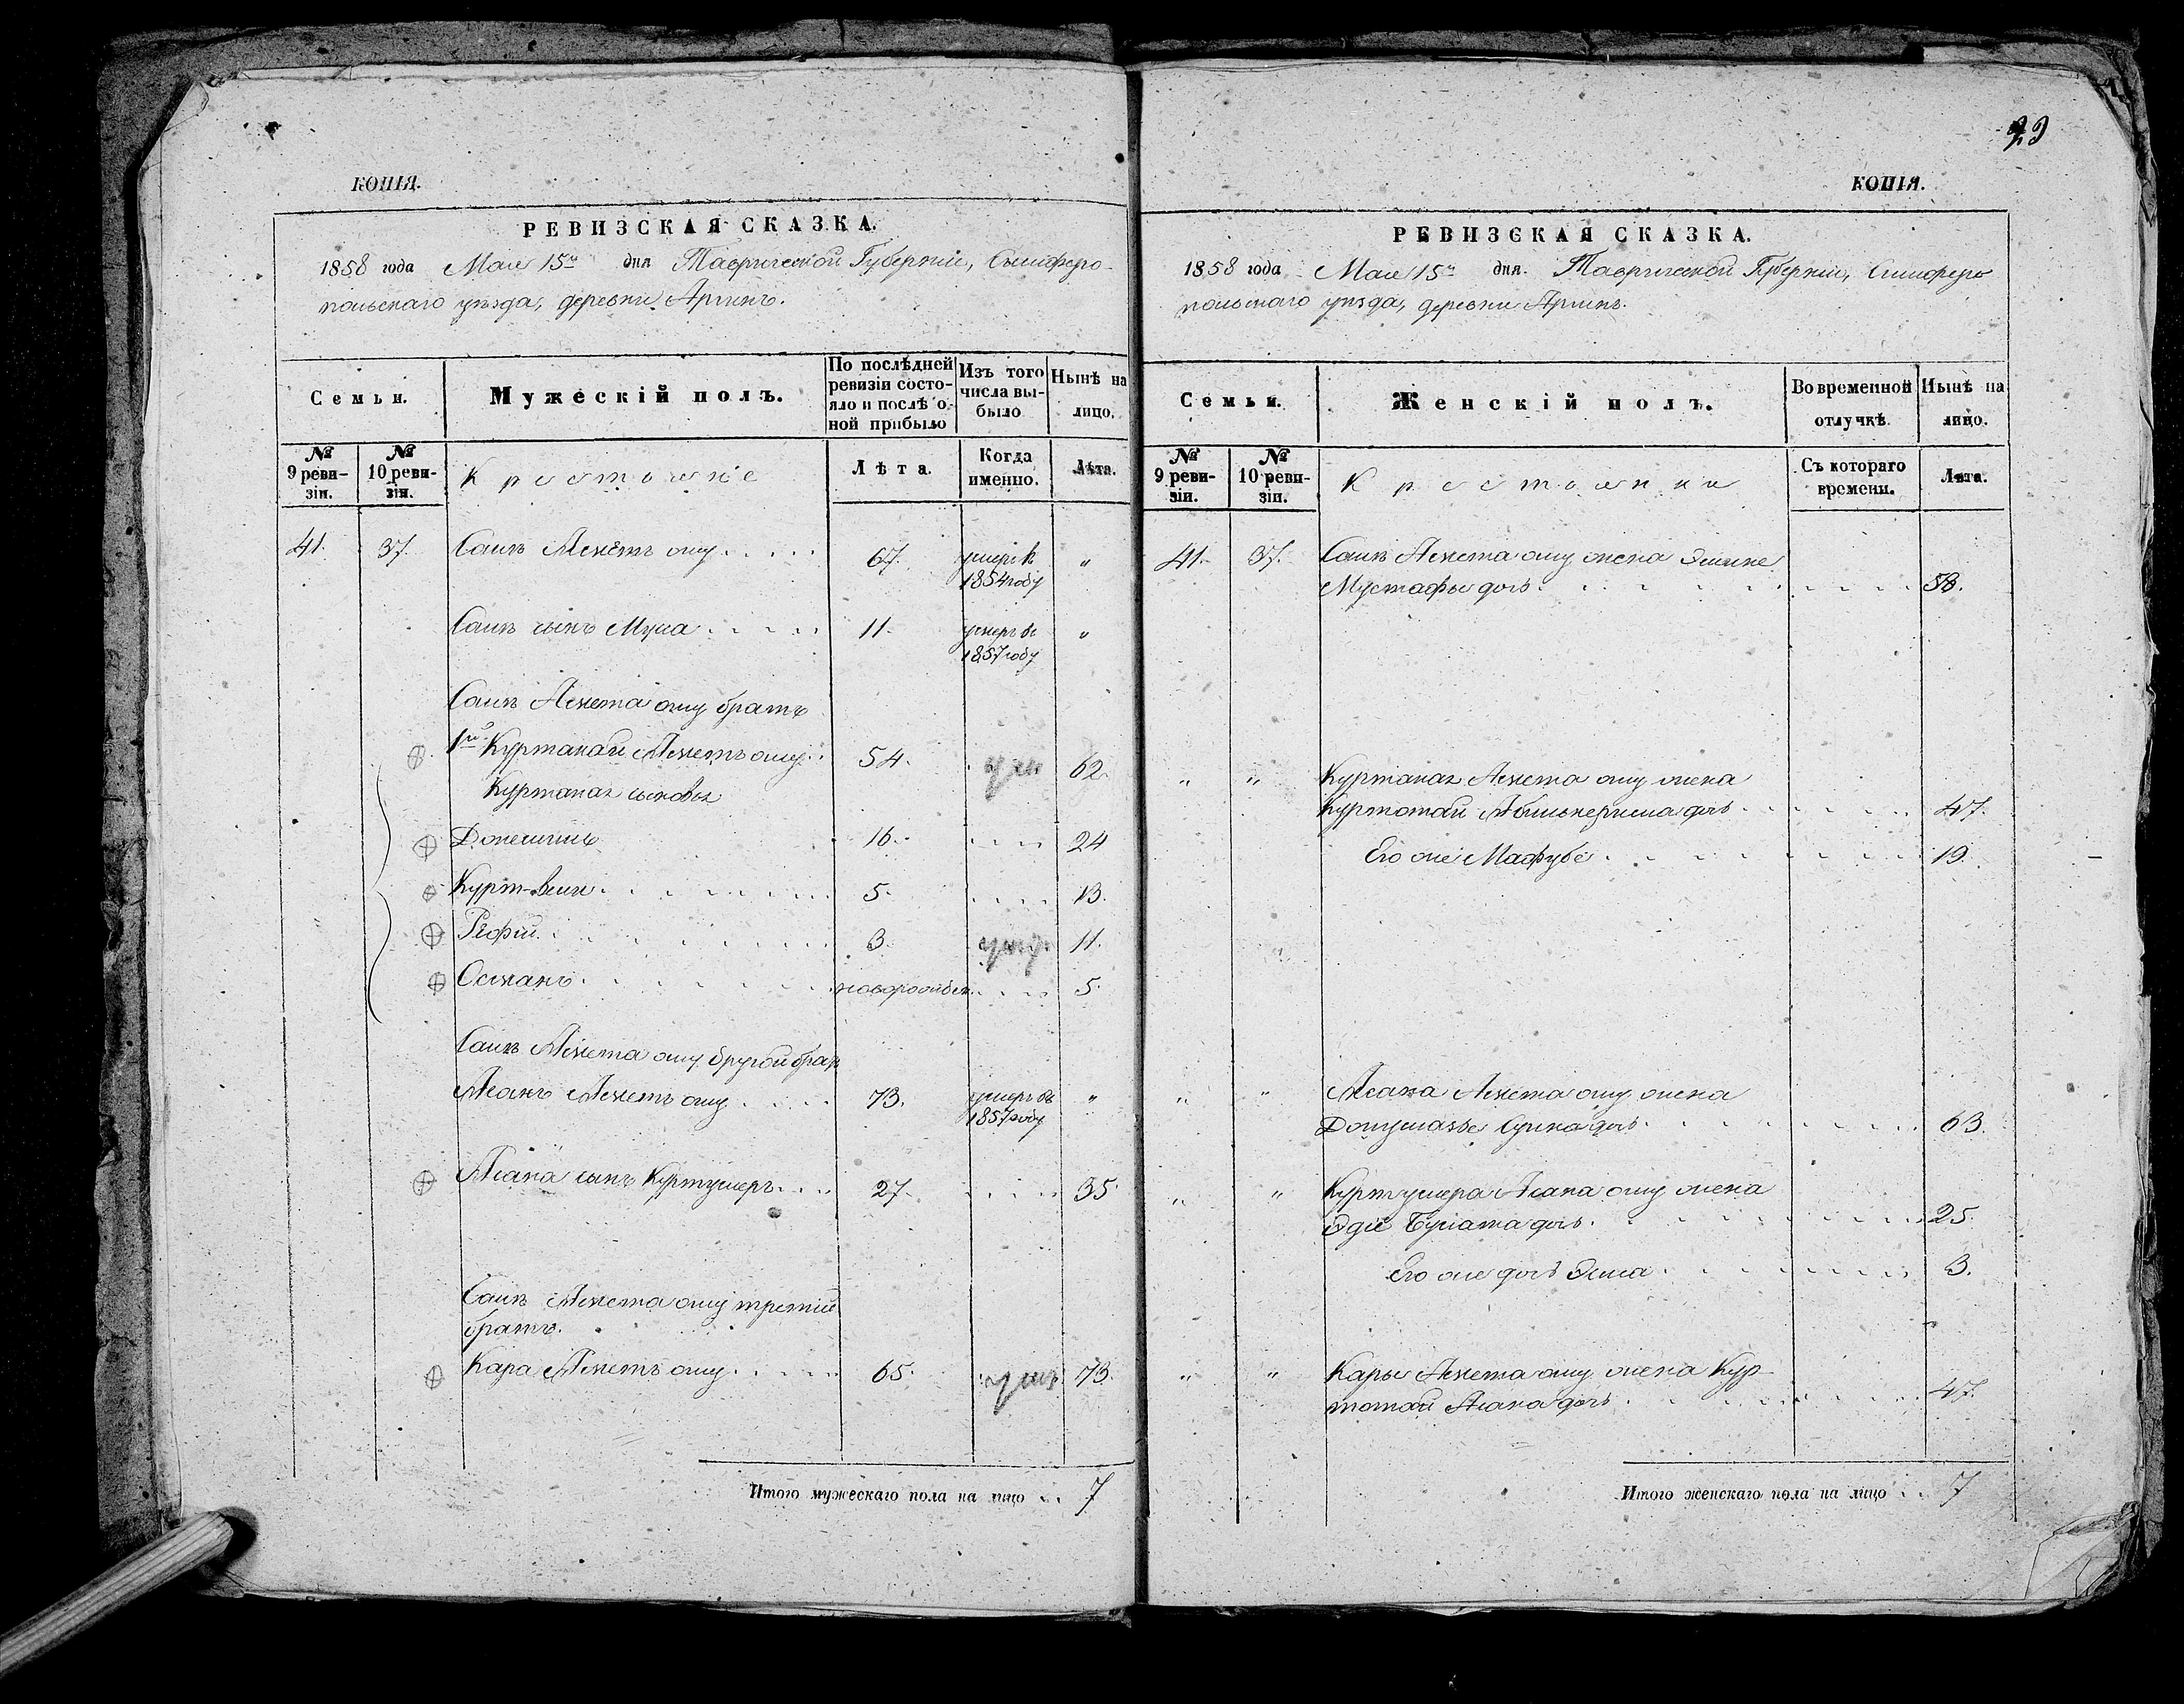 КОПІЯ.
РЕВИЗСКАЯ СКАЗКА.
1858 года Мая 15го дня Таврической Губерніи, Симферо-
польскаго уѣзда, деревни Аргинъ.
Семьи.
Мужескій полъ.
По послѣдней ревизіи состо-
яло и послѣ о-
ной прибыло
Изъ того числа вы-
было
Нынѣ на
лицо.
№ 9 реви-
зіи.
№ 10 реви-
зіи.
Крестьяне
Лѣта.
Когда
именно.
Лѣта.
41. 37. Саит Аметъ оглу 67. умеръ въ "
1854 году
Саит сынъ Муса 11. умеръ въ "
1857 году
Саит Амета оглу братъ
1й Куртанай Аметъ оглу 54. ум 62.
Куртаная сыновья
16. 24
Курт-Вели 5. 13.
Рефій 3. 11.
Османъ новорожден. 5.
Саит Амета оглу другой брат
Асанъ Аметъ оглу 73. умеръ въ "
1857 году
Асана сынъ Куртумеръ 27. 35.
Саит Амета оглу третій
братъ.
Кара Аметъ оглу 65. 73.
Итого мужескаго пола на лицо 7
23
КОПІЯ.
РЕВИЗСКАЯ СКАЗКА.
1858 года Мая 15го дня. Таврической Губерніи, Симферо
польскаго уѣзда, деревни Аргинъ.
Семьи.
Женскій полъ.
Во временной
отлучкѣ.
Нынѣ на
лицо.
№ 9 реви-
зіи.
№ 10 реви-
зіи.
Крестьянки
Съ котораго
времены.
Лѣта.
41. 37. Саит Амета оглу жена Эмине
Мустафы дочь 58.
" " Куртаная Амета оглу жена
Куртотай дочь 47.
Его же Мафубе 19.
" " Асана Амета оглу жена
дочь 63.
" " Куртумера Асана оглу жена
Эдіе дочь 25.
Его же дочь Эсма 3.
" " Кары Амета оглу жена Кур-
тотай Асана дочь 47.
Итого женскаго пола на лицо 7